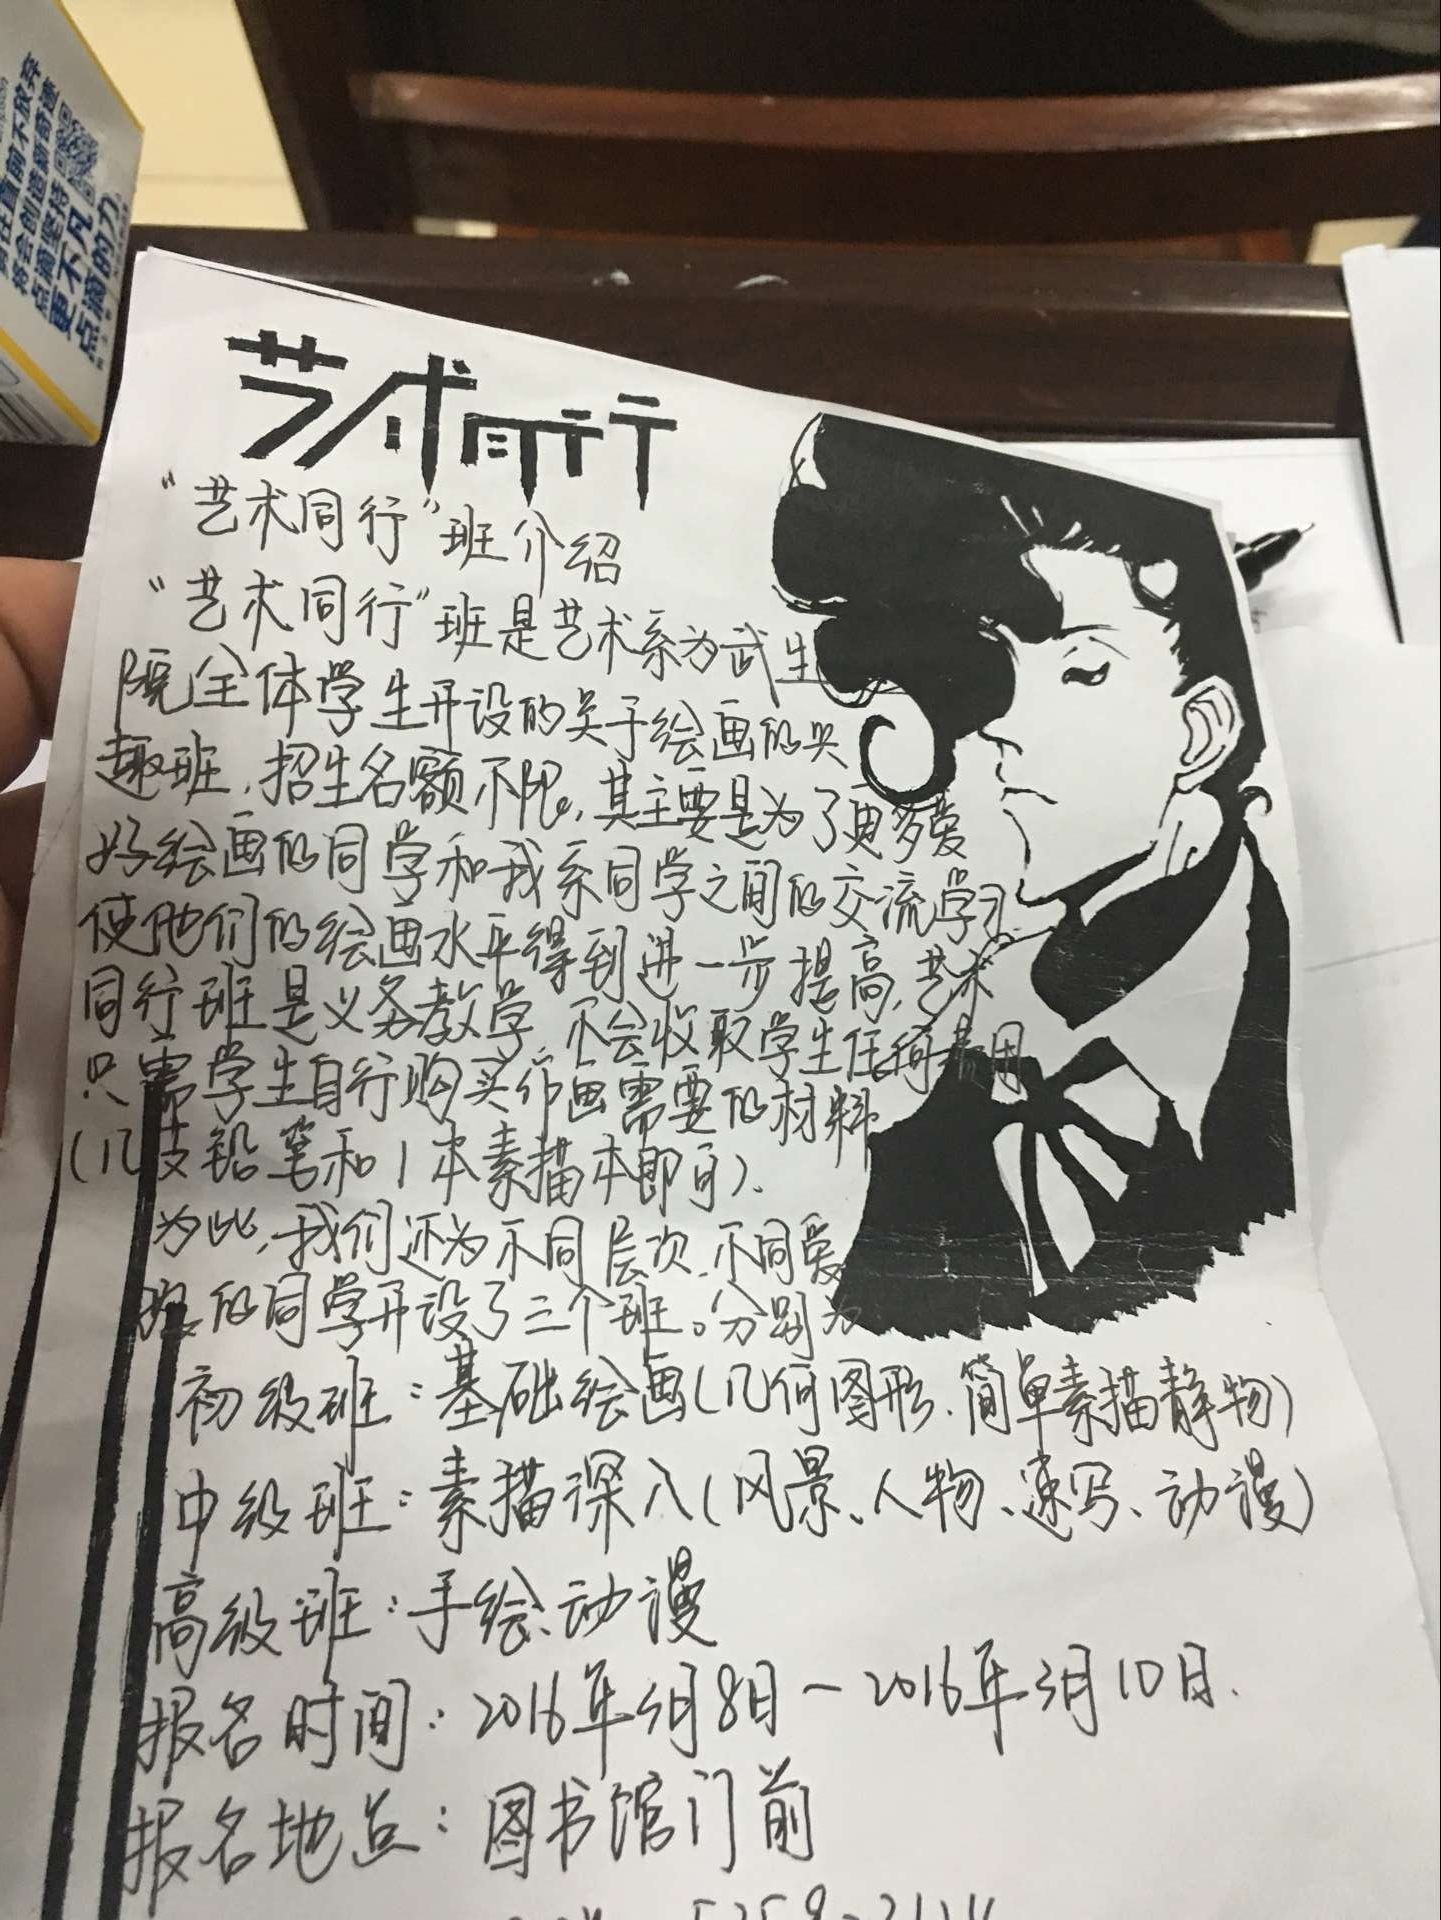 在直前不放弃
将会创造新奇迹
点滴坚持
更不凡
点滴的力
艺术同行
“艺术同行”班介绍
“艺术同行”班是艺术系为武生
院全体学生开设的关于绘画的兴
趣班，招生名额不限，其主要是为了更多爱
好绘画的同学和我系同学之间的交流学习
使他们的绘画水平得到进一步提高，艺术
同行班是义务教学，不会收取学生任何费用
只需学生自行购买作画需要的材料
（几支铅笔和1本素描本即可）．
为此，我们还为不同层次．不同爱
的同学开设了三个班。分别为
初级班：基础绘画（几何图形．简单素描静物）
中级班：素描深入（风景、人物、速写、动漫）
高级班：手绘、动漫
报名时间：2016年3月8日－2016年3月10日．
报名地点：图书馆门前